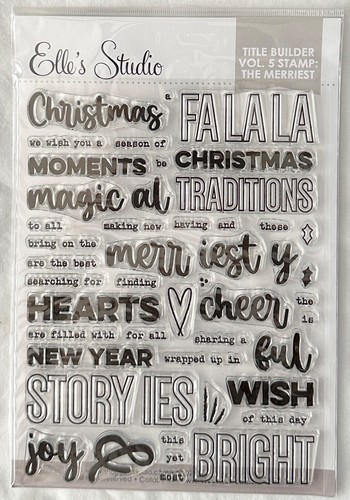 Elle's Studio
TITLE BUILDER
VOL. 5 STAMP:
THE MERRIEST
Christmas a FA LA LA
we wish you a season of
MOMENTS be CHRISTMAS
magic al TRADITIONS
to all making new having and these
bring on the merr iest y
are the best
searching for finding
HEARTS cheer the
is
are filled with for all sharing a
NEW YEAR wrapped up in ful
STORY IES WISH
of this day
joy this BRIGHT
yet
most